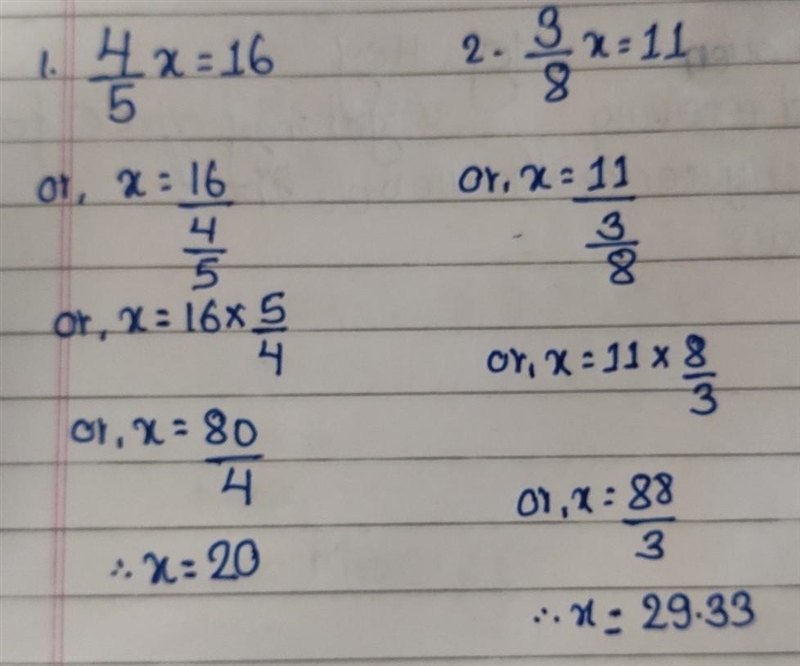 1. 4/5 x = 16
or, x = 16/(4/5)
or, x = 16 × 5/4
or, x = 80/4
∴ x = 20
2. 3/8 x = 11
or, x = 11/(3/8)
or, x = 11 × 8/3
or, x = 88/3
∴ x = 29.33